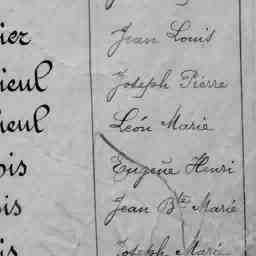 ier Jean Louis
ieul Joseph Pierre
ieul Léon Marie
ois Eugène Henri
is Jean Bte Marie
is Joseph Marie